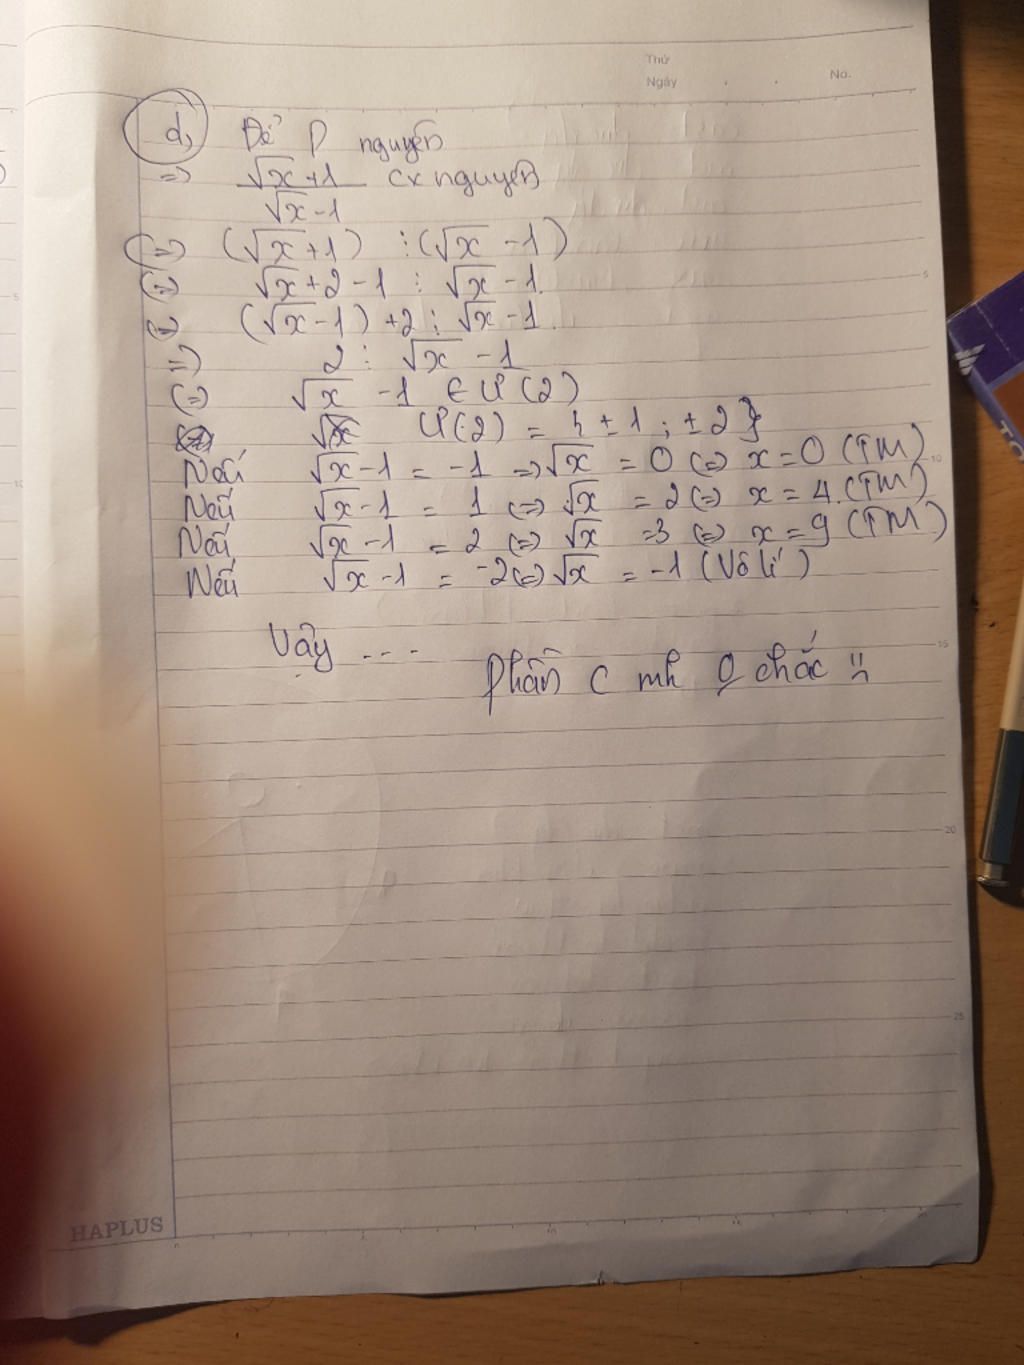 Thứ
Ngày . . No.
d, Để P nguyên
=> √x+1 / √x-1 cx nguyên
(=> (√x+1) ⋮ (√x-1)
(=) √x+2-1 ⋮ √x-1.
(=) (√x-1)+2 ⋮ √x-1.
=> 2 ⋮ √x-1
(=) √x-1 ∈ Ư(2)
Ư(2) = {±1; ±2}
Nếu √x-1 = -1 => √x = 0 (=) x=0 (TM)
Nếu √x-1 = 1 (=) √x = 2 (=) x=4. (TM)
Nếu √x-1 = 2 (=) √x =3 (=) x=9 (TM)
Nếu √x-1 = -2 (=) √x = -1 (Vô lí)
Vậy ....
Phần C mk chắc
HAPLUS